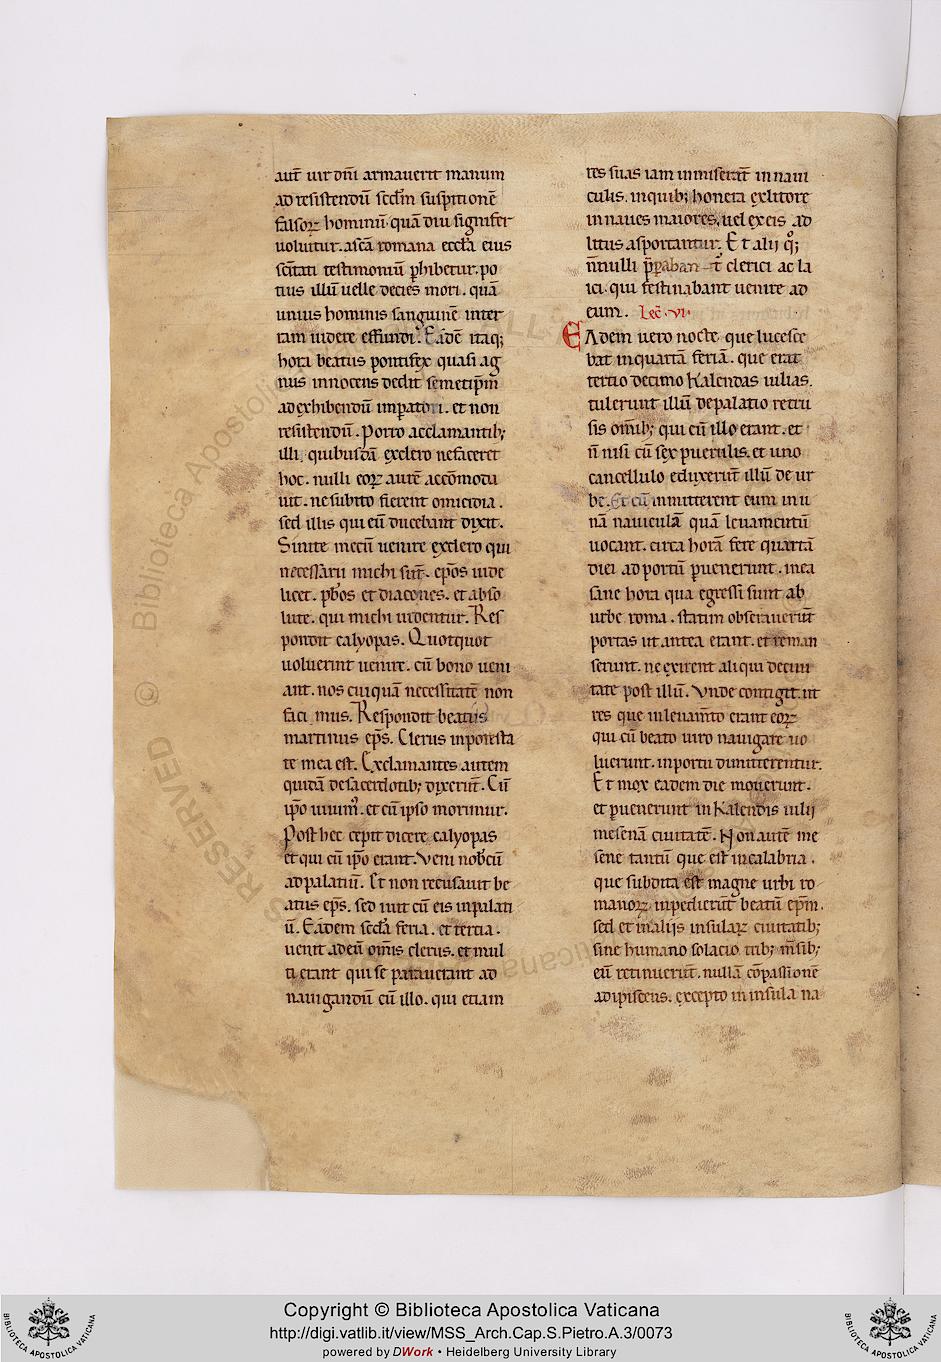 aut̄ uir dn̄i armauerit manum
ad resistendū scd̄m suspitionē
falsoꝝ hominū. quā diu signifer
uoluitur. a sc̄a romana eccl̄a eius
sc̄itati testimoniū ꝑhibetur. po
tius illū uelle decies mori. quā
unius hominis sanguinē inter
ram uidere effundi. Eadē itaq;
hora beatus pontifex quasi ag
nus innocens dedit semetip̄m
ad exhibendū imꝑatori. et non
resistendū. Porro acclamantib;
illi. quibusdā exclero ne faceret
hoc. nulli eoꝝ aurē accōmoda
uit. ne subito fierent omicidia.
sed illis qui eū ducebant dixit.
Sinite mecū uenire exclero qui
necessarii michi sūt. ep̄os uide
licet. pb̄os et diacones. et abso
lute. qui michi uidentur. Res
pondit calyopas. Quotquot
uoluerint uenire. cū bono ueni
ant. nos cuiquā necessitatē non
faci mus. Respondit beatus
martinus ep̄s. Clerus in potesta
te mea est. Exclamantes autem
quidā de sacerdotib; dixerūt. Cū
ip̄o uiuim᷒. et cū ipso morimur.
Post hec cepit dicere calyopas
et qui cū ip̄o erant. Veni nob̄cū
ad palatiū. Et non recusauit be
atus ep̄s. sed iuit cū eis in palati
ū. Eadem sc̄da feria. et tertia.
uenit ad eū om̄is clerus. et mul
ti erant qui se parauerant ad
nauigandū cū illo. qui etiam
res suas iam inmiserūt in naui
culis. in quib; honera ex litore
in naues maiores. uel ex eis ad
litus asportantur. Et alii qͦ;
nn̄ulli clerici ac la
ici. qui festinabant uenire ad
eum. Lec̄. vi.
EAdem uero nocte que lucesce
bat in quartā feriā. que erat
tertio decimo Kalendas iulias.
tulerunt illū de palatio retru
sis om̄ib; qui cū illo erant. et
n̄ nisi cū sex puerulis. et uno
cancellulo eduxerūt illū de ur
be. Et cū inmitterent eum in u
nā nauiculā quā leuamentū
uocant. circa horā fere quartā
diei ad portū ꝑuenerunt. in ea
sane hora qua egressi sunt ab
urbe roma. statim obserauerūt
portas ut antea erant. et reman
serunt. ne exirent aliqui de ciui
tate post illū. Vnde contigit. ut
res que in leuam̄to erant eoꝝ
qui cū beato uiro nauigare uo
luerunt. in portu dimitterentur.
Et mox eadem die mouerunt.
et ꝑuenerunt in Kalendis iulii
mesenā ciuitatē. Non autē me
sene tantū que est in calabria.
que subdita est magne urbi ro
manoꝝ inpedierūt beatū ep̄m.
sed et in aliis insulaꝝ ciuitatib;
sine humano solacio trib; m̄sib;
eū retinuerūt. nullā cōpassionē
adipiscens. excepto in insula na